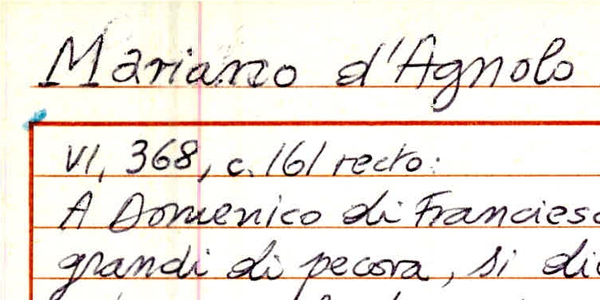 Mariano d'Agnolo
VI, 368, c. 161 recto:
A Domenico di Francesc
grandi di pecora, si dic